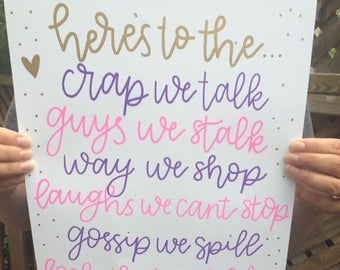 here's to the...
crap we talk
guys we stalk
way we shop
laughs we cant stop
gossip we spill